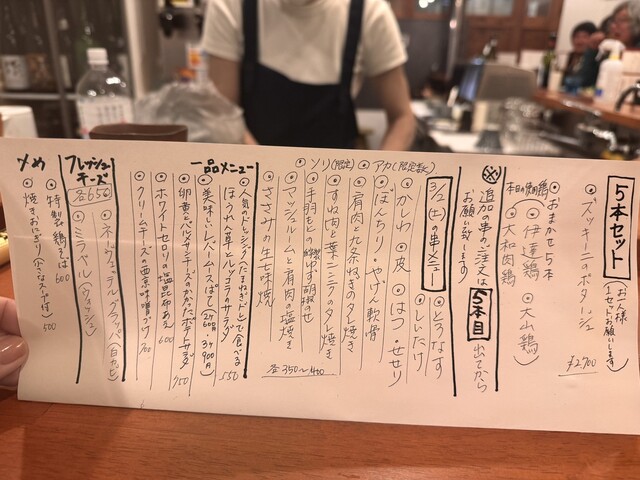 5本セット (お一人様1セットお願いします)
ズッキーニのポタージュ
おまかせ5本 ¥2,700
本日の使用鶏
伊達鶏 大山鶏
大和肉鶏
※追加の串のご注文は5本目出てから
お願い致します
3/2(土)の串メニュー
とろなす
しいたけ
かしわ 皮 はつ せせり
ぼんちり やげん軟骨
ソリ(限定) アカ(限定数)
肩肉と九条ねぎのタレ焼き
すね肉と葉ニンニクのタレ焼き
手羽もとの柚ゆず胡椒のせ
マッシュルームと肩肉の塩焼き
ささみの生七味焼き
各350〜400
一品メニュー
人気のドレッシング(たまねぎ)で食べる
ほうれん草とルッコラのサラダ 550
美味しいレバームースぱて (2ケ600円 3ケ900円)
卵黄とパルメザンチーズのかかったポテトサラダ 750
ホワイトセロリの塩昆布あえ 600
クリームチーズの西京味噌づけ 700
フレッシュチーズ
各650
ミラベル(ウォッシュ)
〆め
特製鶏そば 600
焼きおにぎり(小さなスープ付) 500